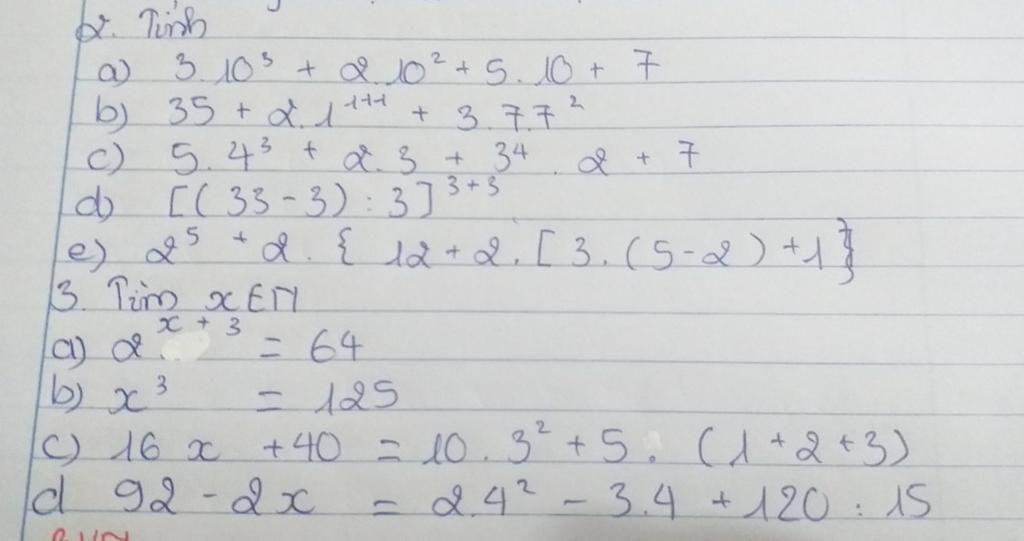 2. Tính
a) 3.10³ + 2.10² + 5.10 + 7
b) 35 + 2.1¹⁺¹⁺¹ + 3.7.7²
c) 5.4³ + 2.3 + 3⁴.2 + 7
d) [(33-3):3]³⁺³
e) 2⁵ + 2.{12+2.[3.(5-2)+1]}
3. Tìm x∈N
a) 2ˣ⁺³ = 64
b) x³ = 125
c) 16x + 40 = 10.3² + 5.(1+2+3)
d 92 - 2x = 2.4² - 3.4 + 120:15